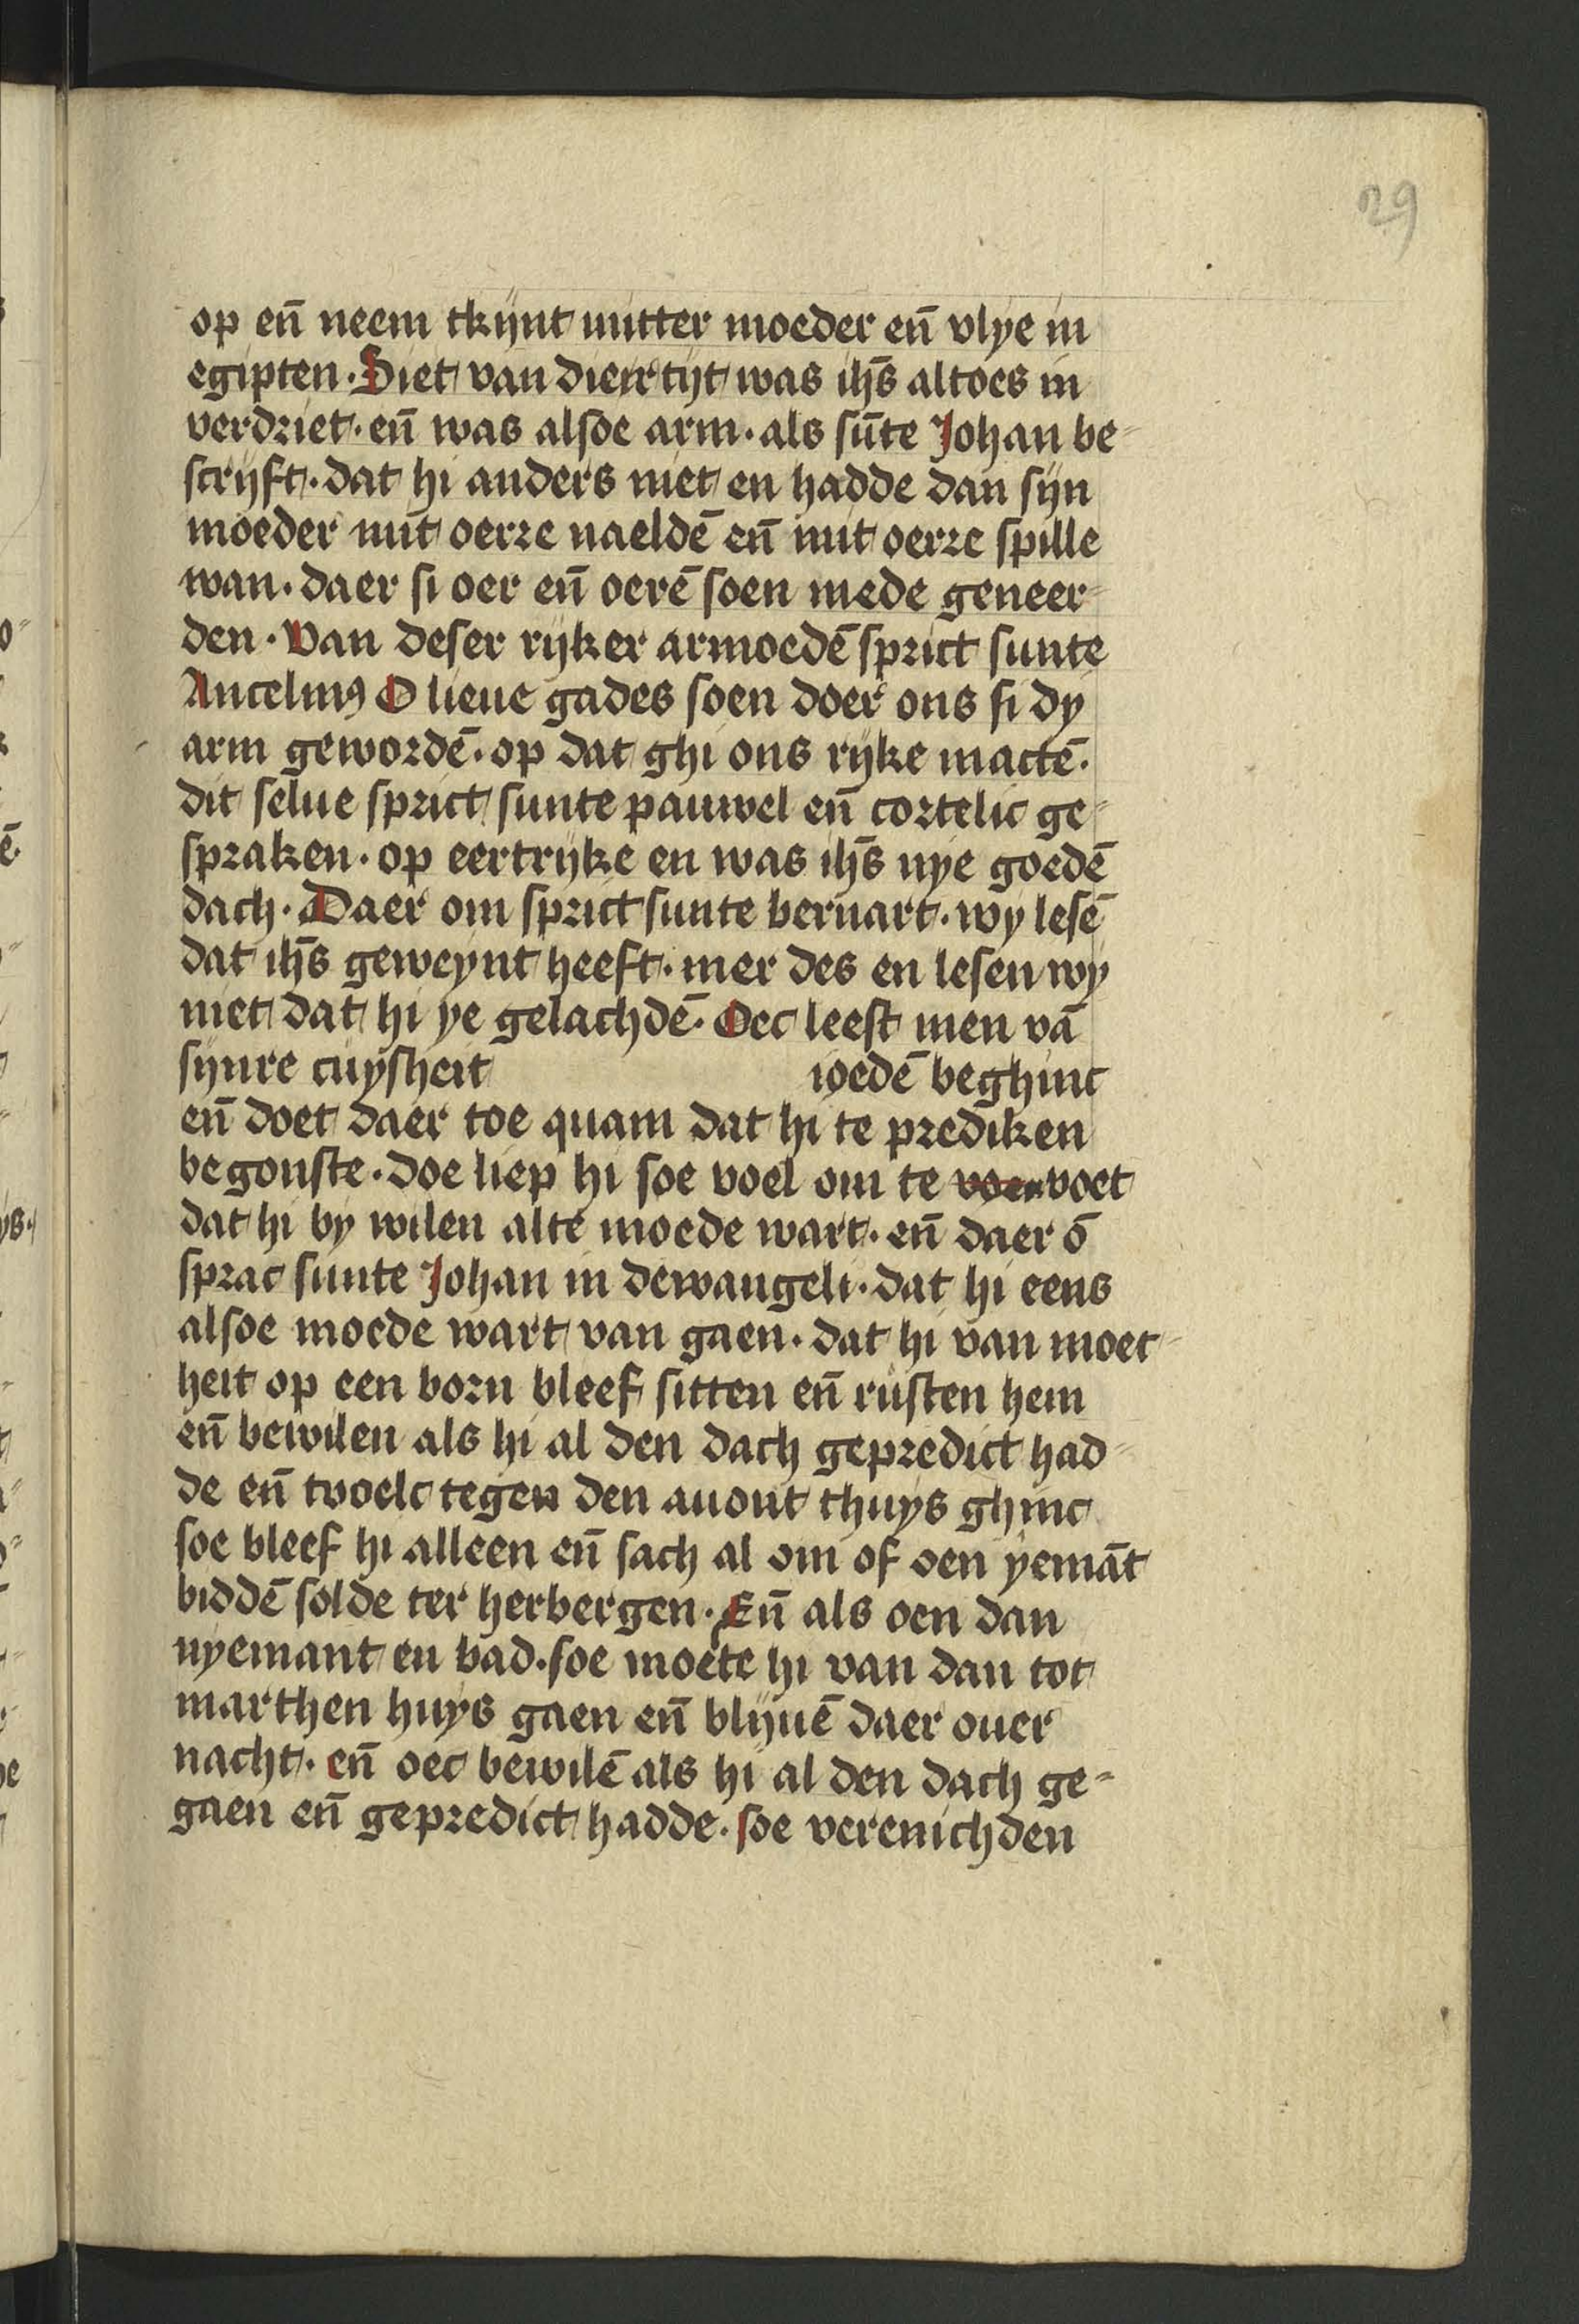 29
op en̄ neem tkijnt mitter moeder en̄ vlye in
egipten. Siet van dier tijt was ihs̄ altoes in
verdriet. en̄ was alsoe arm. als sūte Johan be-
scrijft. dat hi anders niet en hadde dan sijn
moeder mit oerre naeldē en̄ mit oerre spille
wan. daer si oer en̄ oerē soen mede geneer-
den. Van deser rijker armoedē sprict sunte
Ancelmꝰ O lieue gades soen doer ons si dy
arm gewordē. op dat ghi ons rijke mactē.
dit selue sprict sunte pauwel en̄ cortelic ge-
spraken. op eertrijke en was ihs̄ nye goedē
dach. Daer om sprict sunte bernart. wy lesē
dat ihs̄ geweynt heeft. mer des en lesen wy
niet dat hi ye gelachdē. Oec leest men vā
sijnre cuysheit ioedē beghint
en̄ doet daer toe quam dat hi te prediken
begonste. doe liep hi soe voel om te voen voet
dat hi by wilen alte moede wart. en̄ daer ō
sprac sunte Johan in dewangeli. dat hi eens
alsoe moede wart van gaen. dat hi van moet-
heit op een born bleef sitten en̄ rusten hem
en̄ bewilen als hi al den dach gepredict had-
de en̄ tvoelc tegen den auont thuys ghinc
soe bleef hi alleen en̄ sach al om of oen yemāt
biddē solde ter herbergen. En̄ als oen dan
nyemant en bad. soe moete hi van dan tot
marthen huys gaen en̄ blijuē daer ouer
nacht. en̄ oec bewilē als hi al den dach ge-
gaen en̄ gepredict hadde. soe verenichden